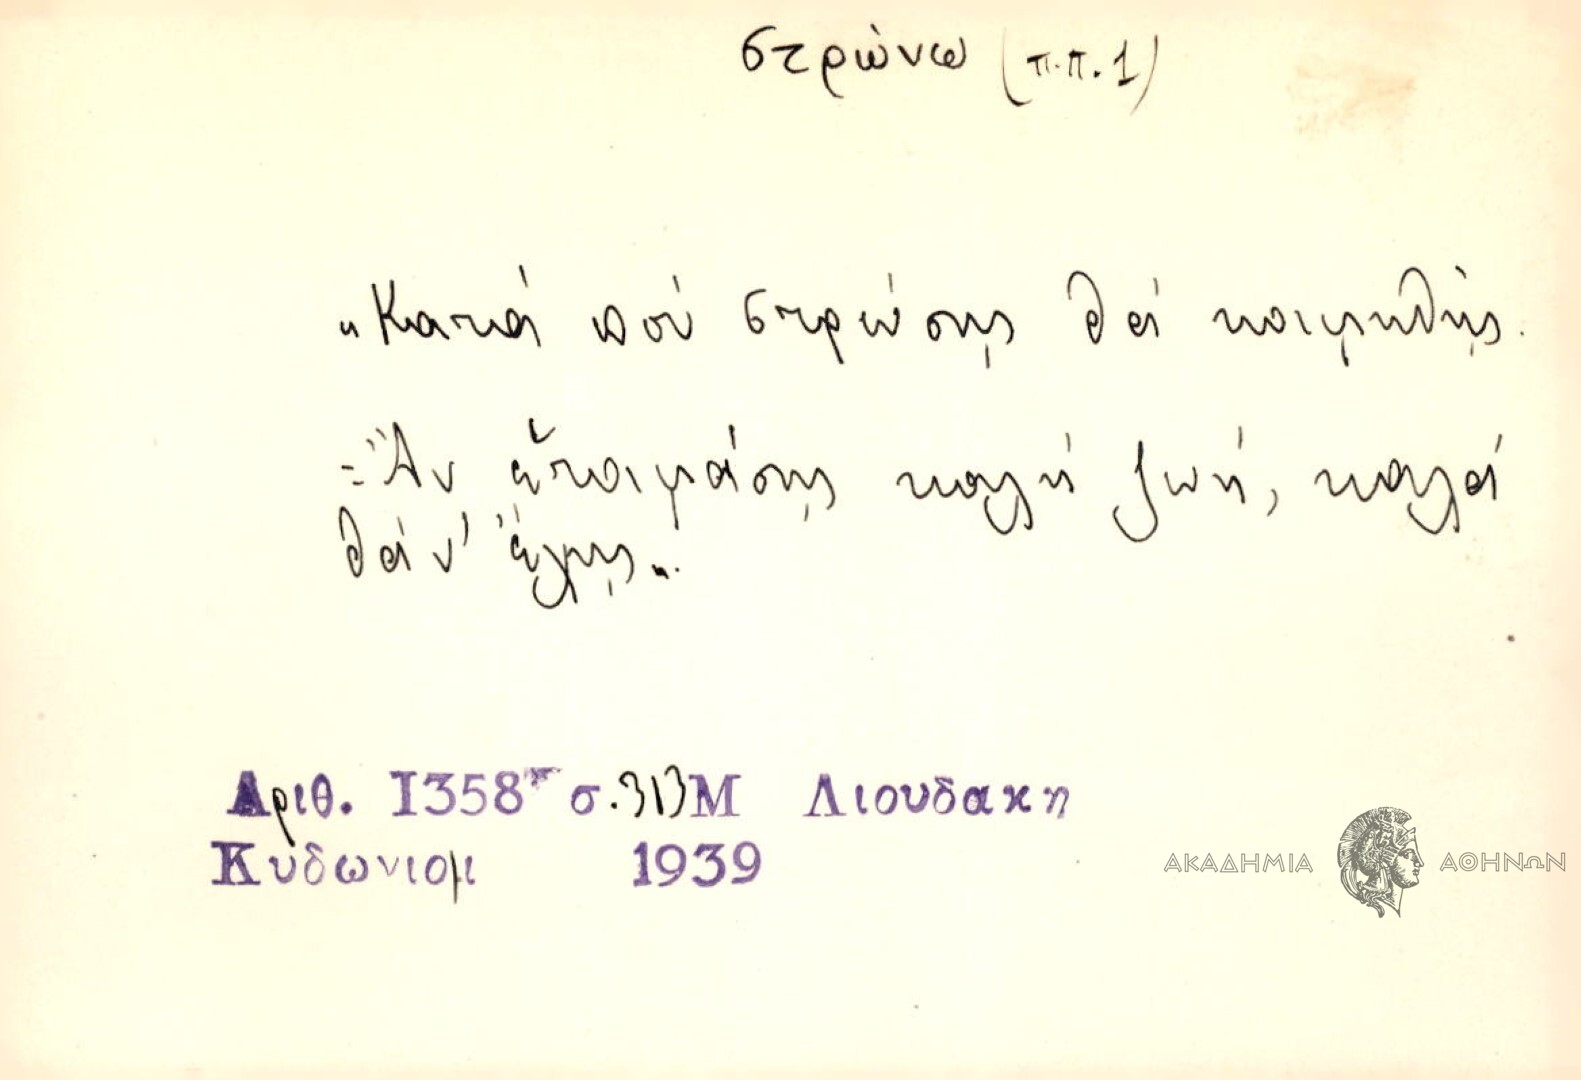 στρώνω (π.π. 1)
"Κατά πού στρώσης θά κοιμηθής.
=Ἂν ἑτοιμάσης καλή ζωή, καλά
θά ν' ἔχης".
Αριθ. 1358 σ. 313 Μ Λιουδακη
Κυδωνιομ 1939
ΑΚΑΔΗΜΙΑ ΑΘΗΝΩΝ